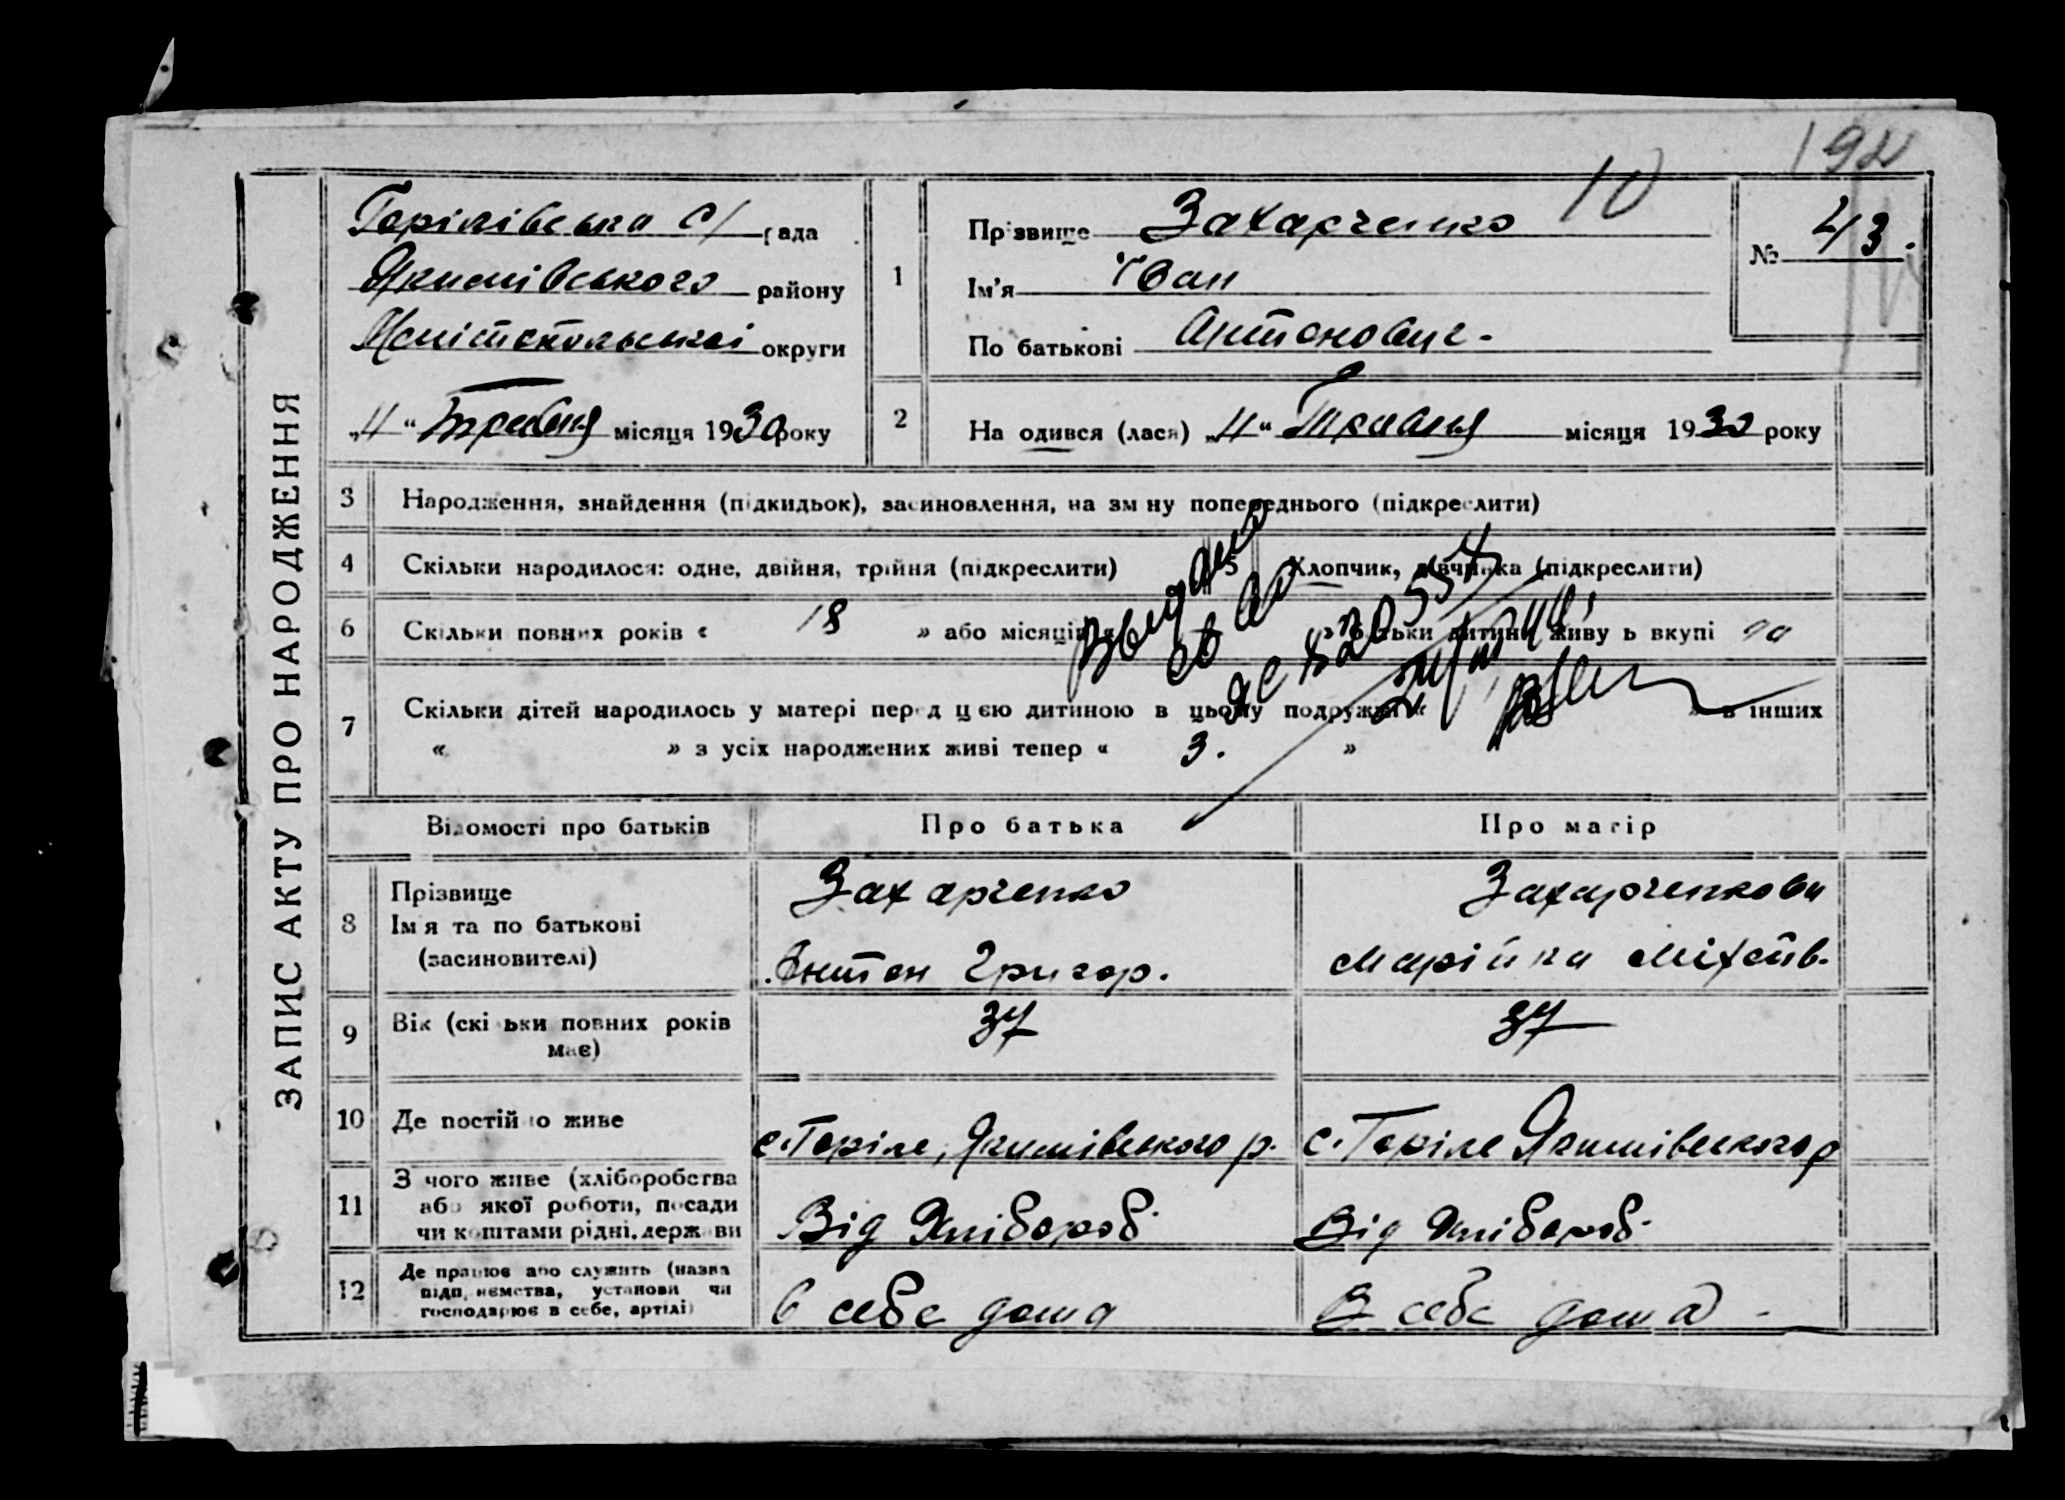 192
10
ЗАПИС АКТУ ПРО НАРОДЖЕННЯ
Горілівська с/рада
Якимівського району
Мелітопольської округи
„11“ Травня місяця 1930 року
1
Прізвище Захарченко
Ім'я Іван
По батькові Антонович.
№ 43.
2
Народився (лася) „11“ Травня місяця 1930 року
3 Народження, знайдення (підкидьок), засиновлення, на зміну попереднього (підкреслити)
4 Скільки народилося: одне, двійня, трійня (підкреслити) 5 Хлопчик, дівчинка (підкреслити)
6 Скільки повних років « 18 » або місяців батьки дитини живуть вкупі
7 Скільки дітей народилось у матері перед цією дитиною в цьому подружжі « » в інших
« » з усіх народжених живі тепер « 3. »
Відомості про батьків Про батька Про матір
8 Прізвище Захарченко Захарченкова
Ім'я та по батькові
(засиновителі) Антон Григор. Марійка
9 Вік (скільки повних років має) 37 37
10 Де постійно живе с. Горіле, Якимівського р. с. Горіле Якимівського р
11 З чого живе (хліборобства
або якої роботи, посади
чи коштами рідні, держави Від Хлібороб. Від Хлібороб.
12 Де працює або служить (назва
підприємства, установи чи
господарює в себе, артілі) В себе дома В себе дома